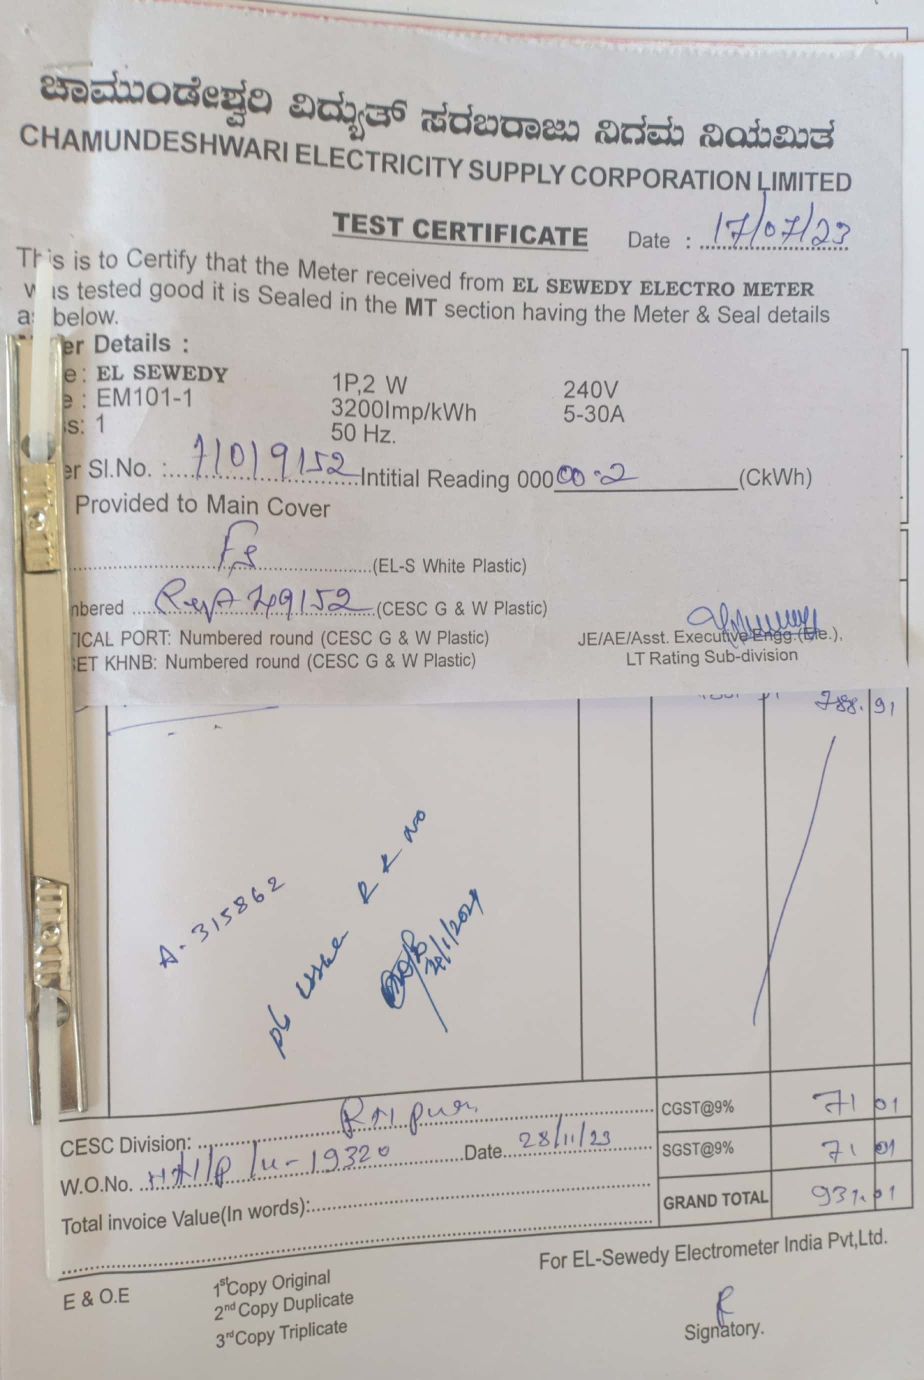 ಚಾಮುಂಡೇಶ್ವರಿ ವಿದ್ಯುತ್ ಸರಬರಾಜು ನಿಗಮ ನಿಯಮಿತ
CHAMUNDESHWARI ELECTRICITY SUPPLY CORPORATION LIMITED
TEST CERTIFICATE Date : 17/07/23
This is to Certify that the Meter received from EL SEWEDY ELECTRO METER
was tested good it is Sealed in the MT section having the Meter & Seal details
as below.
er Details :
e : EL SEWEDY 1P,2 W 240V
e : EM101-1 3200Imp/kWh 5-30A
ss: 1 50 Hz.
er Sl.No. : 71019152 Intitial Reading 00000.2 (CkWh)
Provided to Main Cover
(EL-S White Plastic)
nbered 749152 (CESC G & W Plastic)
ICAL PORT: Numbered round (CESC G & W Plastic) JE/AE/Asst. Executive Engg.(Ele.),
ET KHNB: Numbered round (CESC G & W Plastic) LT Rating Sub-division
788.91
A-315862
CESC Division: CGST@9% 71 01
W.O.No. 19320 Date 28/11/23 SGST@9% 71 01
Total invoice Value(In words): GRAND TOTAL 931.01
For EL-Sewedy Electrometer India Pvt,Ltd.
E & O.E 1st Copy Original
2nd Copy Duplicate
3rd Copy Triplicate Signatory.